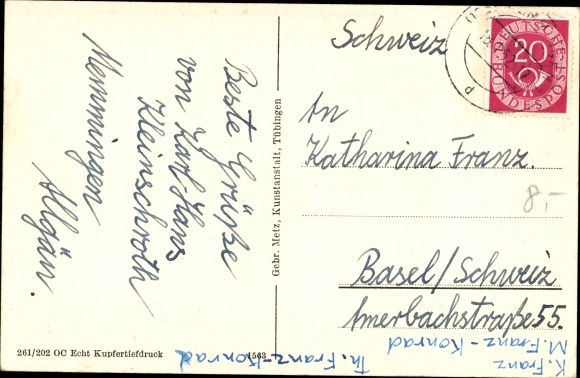 Beste Grüße
von Karl-Hans
Kleinschroth
Memmingen
Allgäu.
Gebr. Metz, Kunstanstalt, Tübingen
Schweiz
DEUTSCHE
20
BUNDESPOST
An
Katharina Franz.
8,-
Basel/Schweiz
Amerbachstraße 55.
K. Franz
M. Franz-Konrad
Th. Franz-Konrad
261/202 OC Echt Kupfertiefdruck
1563